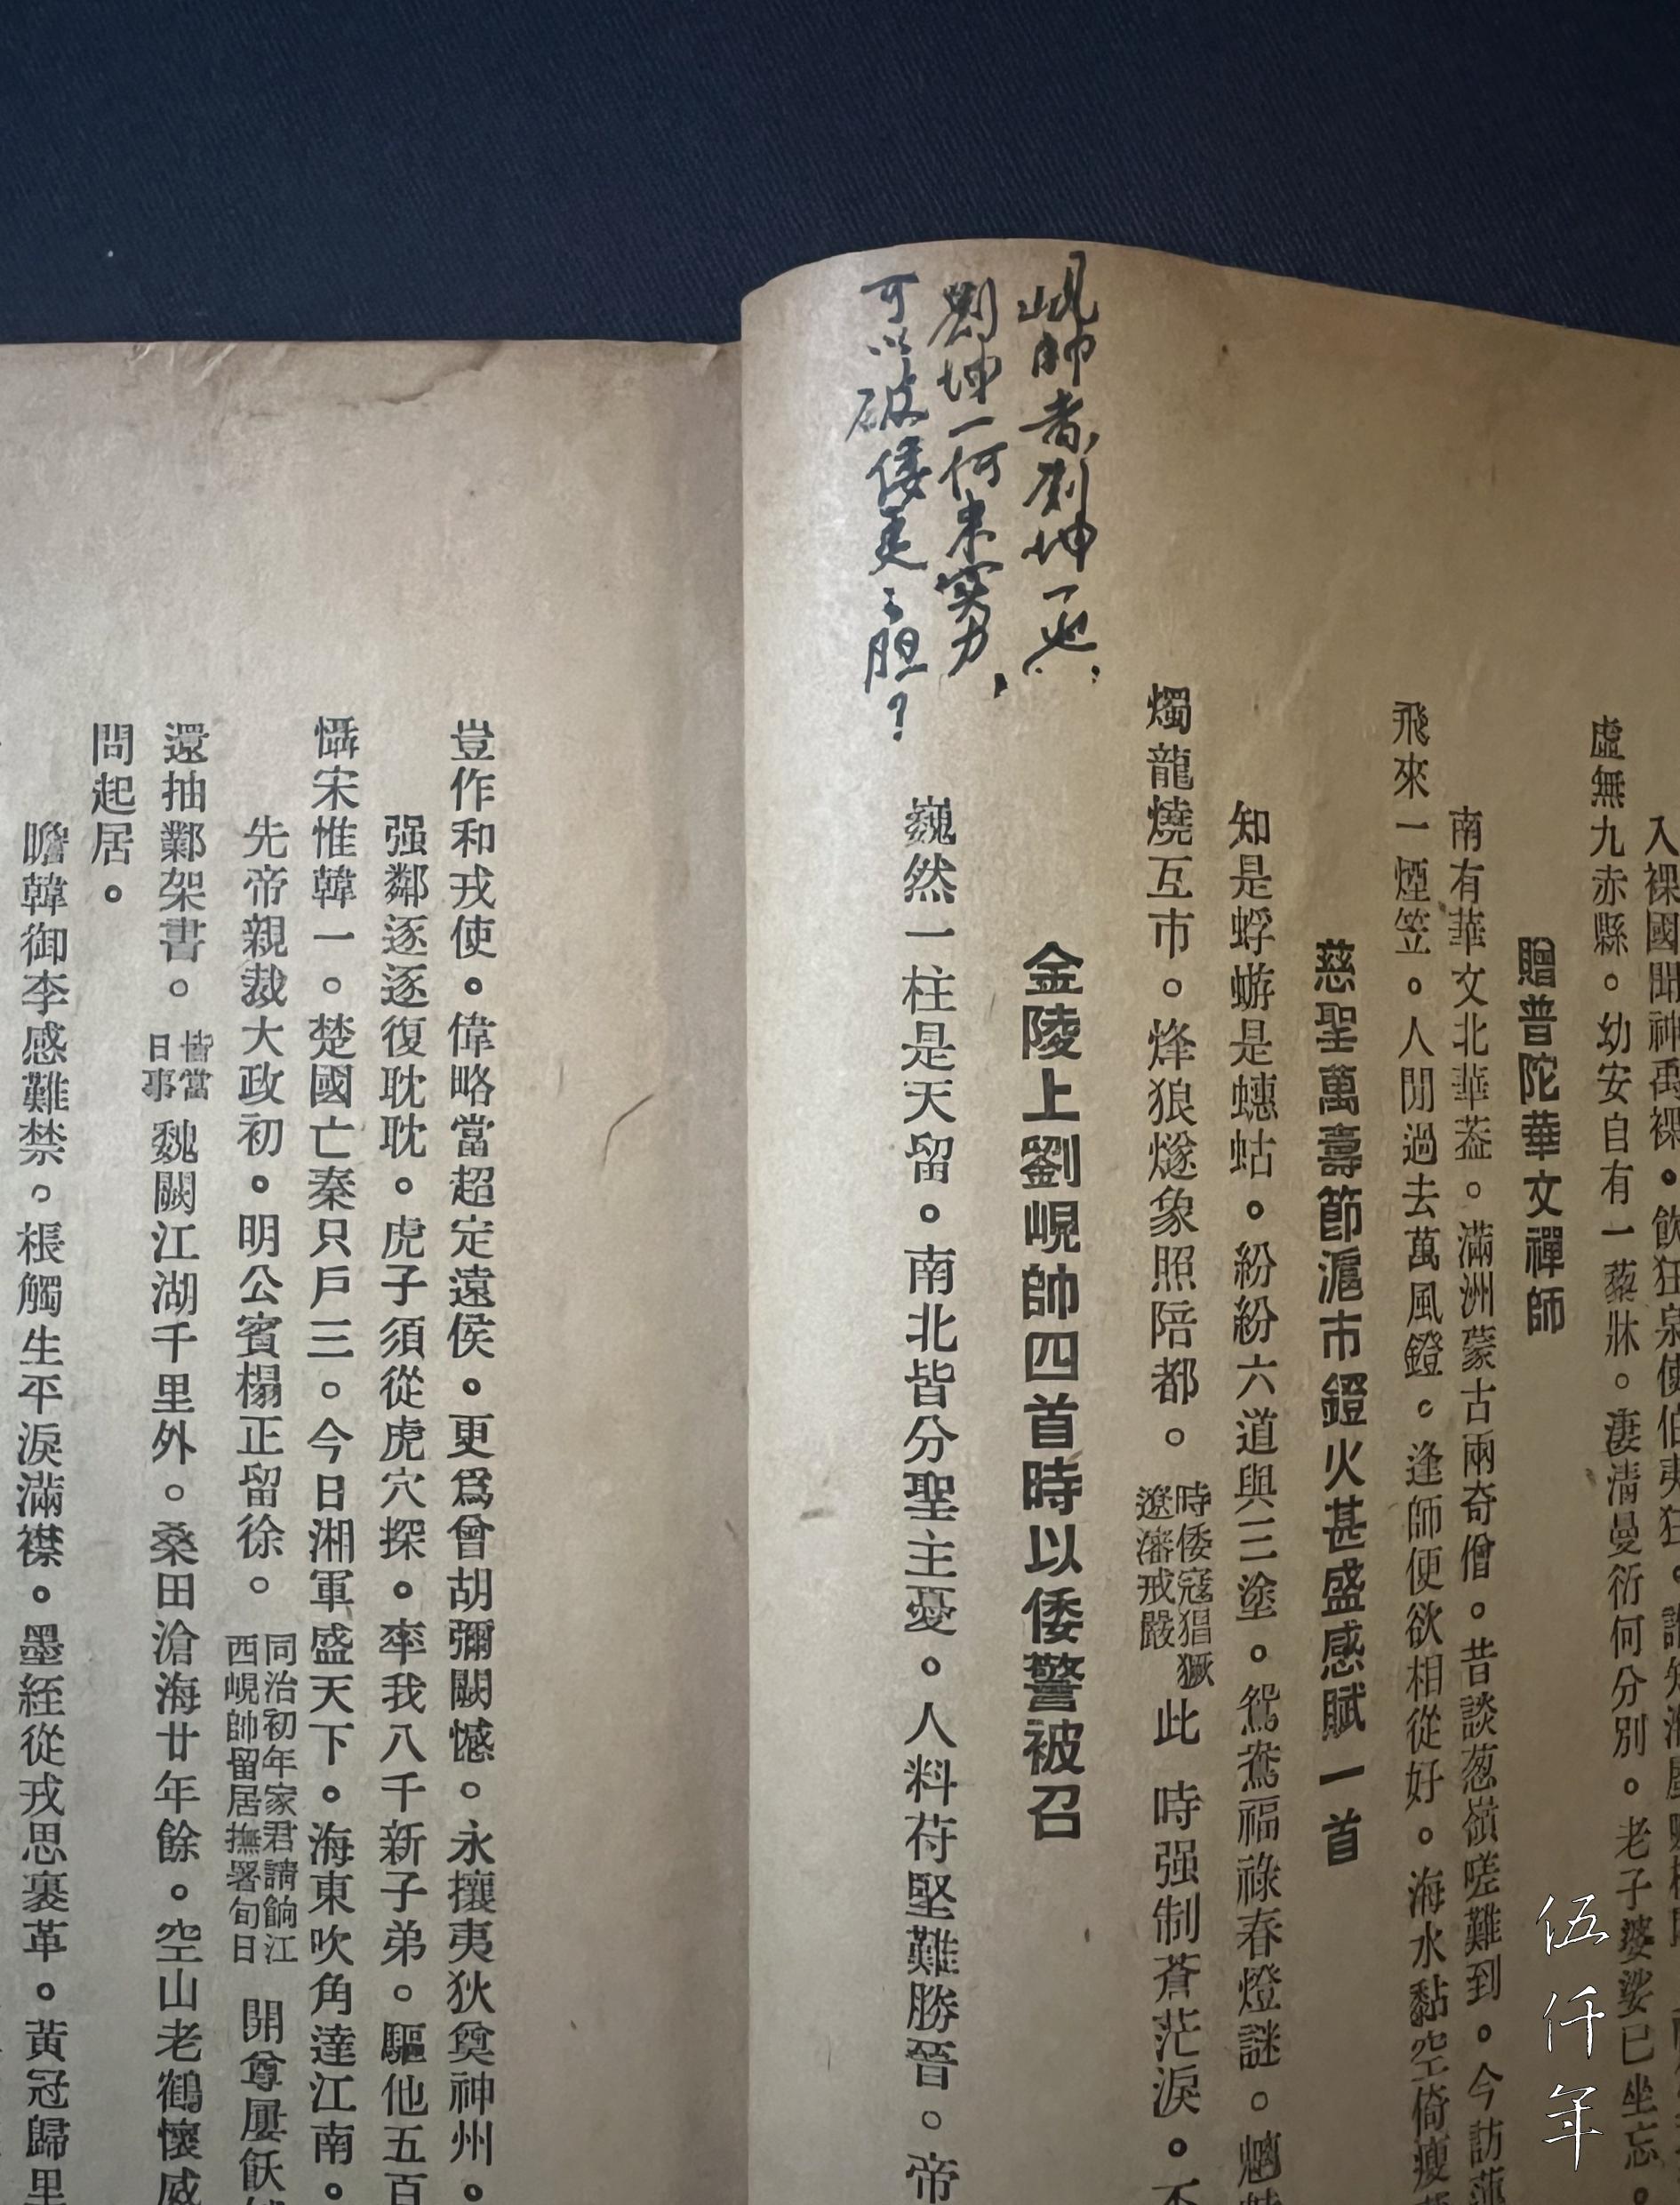 入裸國聞神禹裸。飲狂泉使伯夷狂。
虛無九赤縣。幼安自有一藜牀。淒清曼衍何分別。老子婆娑已坐忘。
贈普陀華文禪師
南有華文北華葢。滿洲蒙古兩奇僧。昔談葱嶺嗟難到。今訪
飛來一煙笠。人間過去萬風鐙。逢師便欲相從好。海水黏空倚瘦
慈聖萬壽節滬市鐙火甚盛感賦一首
知是蜉蝣是蟪蛄。紛紛六道與三塗。鴛鴦福祿春燈謎。
燭龍燒互市。烽狼燧象照陪都。時倭寇猖獗遼瀋戒嚴此時强制蒼茫淚。不
岘帥者,劉坤一也.
劉坤一何未窮力,
可以破倭夷之胆?
金陵上劉峴帥四首時以倭警被召
巍然一柱是天留。南北皆分聖主憂。人料苻堅難勝晉。帝
豈作和戎使。偉略當超定遠侯。更爲曾胡彌闕憾。永攘夷狄奠神州。
强鄰逐逐復耽耽。虎子須從虎穴探。率我八千新子弟。驅他五百
懾宋惟韓一。楚國亡秦只戶三。今日湘軍盛天下。海東吹角達江南。
先帝親裁大政初。明公賓榻正留徐。同治初年家君請餉江西峴帥留居撫署旬日開尊屢飫
還抽鄴架書。皆當日事魏闕江湖千里外。桑田滄海廿年餘。空山老鶴懷
問起居。
瞻韓御李感難禁。棖觸生平淚滿襟。墨絰從戎思裹革。黃冠歸里
伍仟年